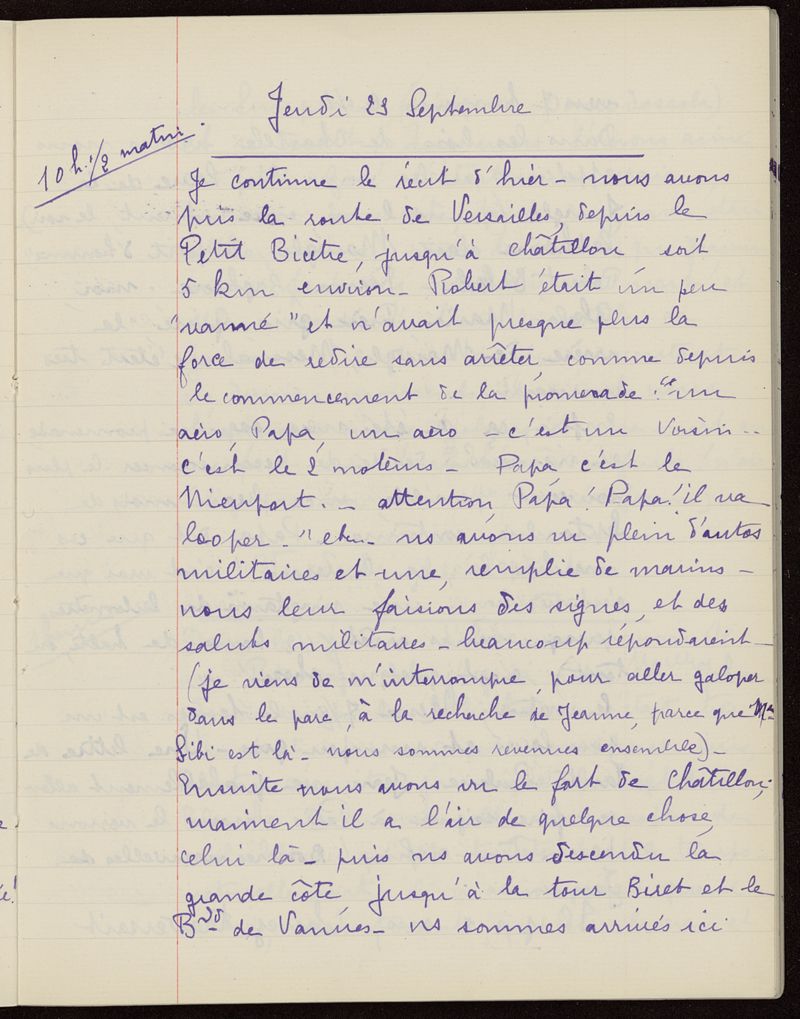 Jeudi 23 Septembre
10 h. 1/2 matin.
Je continue le récit d'hier - nous avons
pris la route de Versailles, depuis le
Petit Bicêtre, jusqu'à Châtillon soit
5 km environ - Robert était un peu
"vanné" et n'avait presque plus la
force de redire sans arrêter, comme depuis
le commencement de la promenade : "un
aéro, Papa, un aéro - c'est un Voisin..
c'est le 2 moteurs - Papa, c'est le
Nieuport. - attention, Papa ! Papa ! il va
looper -" etc.. ns avons vu plein d'autos
militaires et une, remplie de marins -
nous leur faisions des signes, et des
saluts militaires - beaucoup répondaient -
(je viens de m'interrompre, pour aller galoper
dans le parc, à la recherche de Jeanne, parce que
Bibi est là - nous sommes revenues ensemble) -
Ensuite nous avons vu le fort de Châtillon ;
vraiment il a l'air de quelque chose,
celui là - puis ns avons descendu la
grande côte, jusqu'à la tour Biret et le
Bvd de Vanves - ns sommes arrivés ici